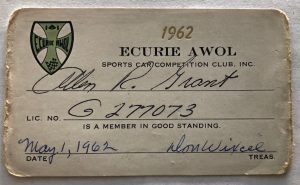 1962
ECURIE AWOL
ECURIE AWOL
SPORTS CAR COMPETITION CLUB, INC.
Allen R. Grant
LIC. NO. G 277073
IS A MEMBER IN GOOD STANDING.
May 1, 1962 Don Wixcel
DATE TREAS.